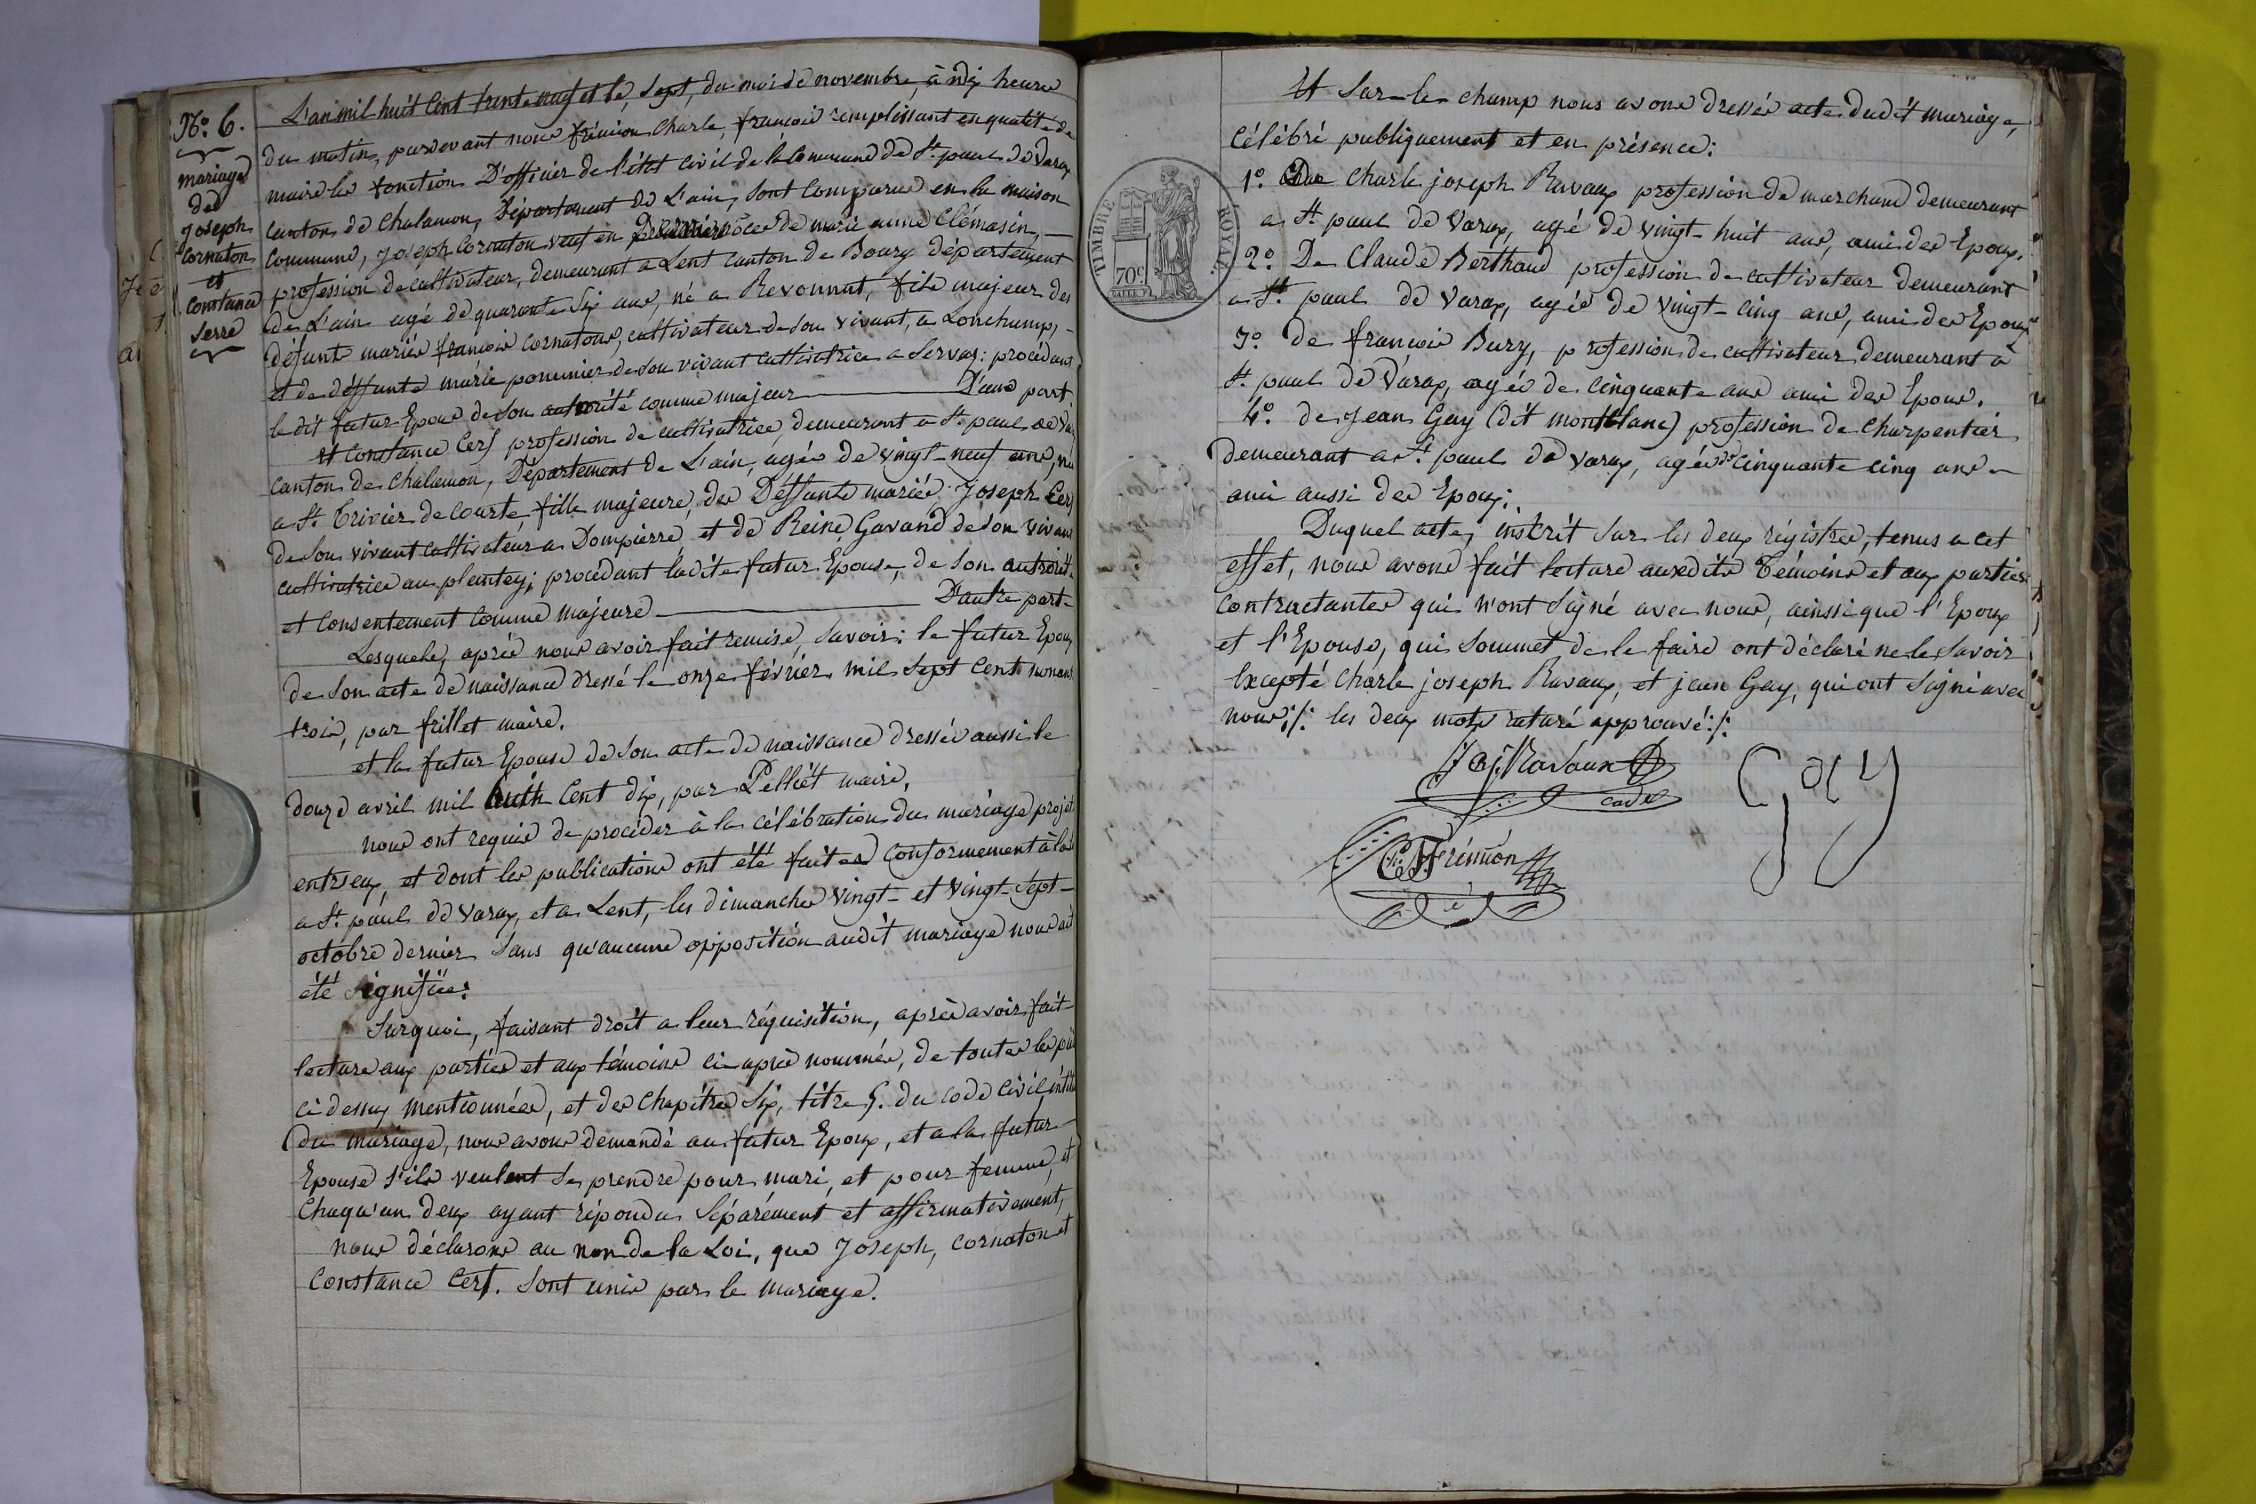 N.° 6.
mariage
de
Joseph
Cornaton
et
Constance
Serre
L'an mil huit Cent trente neuf et le, Sept, du moi de novembre, à dix heure
du matin, pardevant nous frémion Charle, françois remplissant en qualité de
maire les fonction D'officier de l'état civil de la Commune de St. paul de Varax
canton de Chalamon, Département de L'ain, Sont Comparue en la maison
Commune, Joseph Cornaton veuf en noces de marie anne Clémasin,
profession de cultivateur, demeurant a Lent canton de Bourg département
de L'ain agé de quarante Six ans, né a Revonnat, fils majeur des
défunt mariés françois Cornatons, cultivateur de son vivant, a Lonchamps,
et de déffunte marie pommier de son vivant cultivatrice a Servas: procédant
le dit futur Epous de son autorité comme majeur D'une part.
Et Constance Cerf profession de cultivatrice, demeurant a St. paul de Var
canton de Chalamon, Département de L'ain, agée de vingt-neuf ans, né
a St. trivier de courte, fille majeure, des Déffunts mariés Joseph Cerf
de son vivant cultivateur a Dompierre, et de Reine Gavand de son vivant
cultivatrice au plantey; procédant ladite futur Epouse, de son autroité
et Consentement Comme majeure D'autre part
Lesquels, après nous avoir fait remise, Savoir: le futur Epoux
de son acte de naissance dressé le onze février mil Sept Cent nonant
trois, par frillet maire.
et la futur Epouse de son acte de naissance dressée aussi le
douze avril mil huit Cent dix, par Pelliet maire.
nous ont requis de procéder à la célébration du mariage projet
entreux, et dont les publications ont été faites Conformement à la
a St. paul de Varax, et a Lent, les dimanches vingt- et vingt-Sept-
octobre dernier Sans qu'aucune opposition audit mariage nous ait
été Signifiée:
Surquoi, faisant droit a leur réquisition, après avoir fait
lecture aux parties et aux témoins ci-après nommée, de toutes les piè
ci dessus mentionnées, et des Chapitre Six, titre 5. du Code civil intitu
(du mariage, nous avons demandé au futur Epoux, et a la futur
Epouse S'ils veulent Se prendre pour mari, et pour femme, et
Chaqu'un deux ayant répondu Séparément et affirmativement,
nous déclarons au non de la Loi, que Joseph, Cornaton et
Constance Cerf. Sont unis par le mariage.
Et Sur-le-champ nous avons dressée acte dudit mariage,
Célébré publiquement et en présence:
1°. Charle joseph Ravaux profession de marchand demeurant
a St. paul de Varax, agé de vingt-huit ans, ami des Epoux.
2°. De Claude Berthaud profession de cultivateur demeurant
a St. paul de Varax, agée de vingt-cinq ans, ami des Epoux
3°. de françois Bury, profession de cultivateur demeurant a
St. paul de Varax, agée de cinquante ans ami des Epoux.
4°. de Jean Gay (dit montblanc) profession de Charpentier
demeurant a St. paul de Varax, agée de Cinquante cinq ans
ami aussi des Epoux;
Duquel acte, inscrit Sur les deux régistres, tenus a cet
effet, nous avons fait lecture auxdits témoins et aux parties
contractantes qui n'ont Signé avec nous, ainssi que l'Epoux
et l'Epouse, qui Sommet de le faire ont déclaré ne le Savoir
Excepté Charle joseph Ravaux, et jean Gay, qui ont Signé avec
nous ;/: les deux mots raturé approuvé:/:
Ravaux
Gay
Frémion
TIMBRE ROYAL
70c.